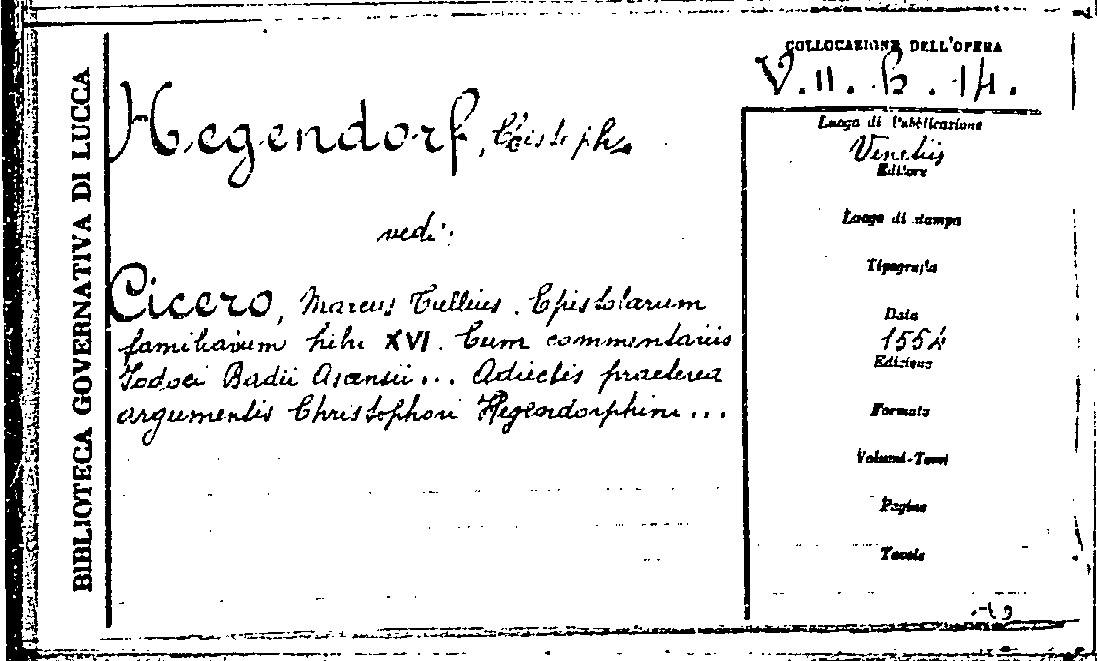 BIBLIOTECA GOVERNATIVA DI LUCCA
COLLOCAZIONE DELL'OPERA
V. II. b. 14.
Hegendorf, Christoph
vedi:
Cicero, Marcus Tullius. Epistolarum
familiarum libri XVI. Cum commentariis
Jodoci Badii Ascensii... Adiectis praeterea
argumentis Christophori Hegendorphini...
Luogo di Pubblicazione
Venetiis
Editore
Luogo di stampa
Tipografia
Data
1554
Edizione
Formato
Volumi-Tomi
Pagine
Tavole